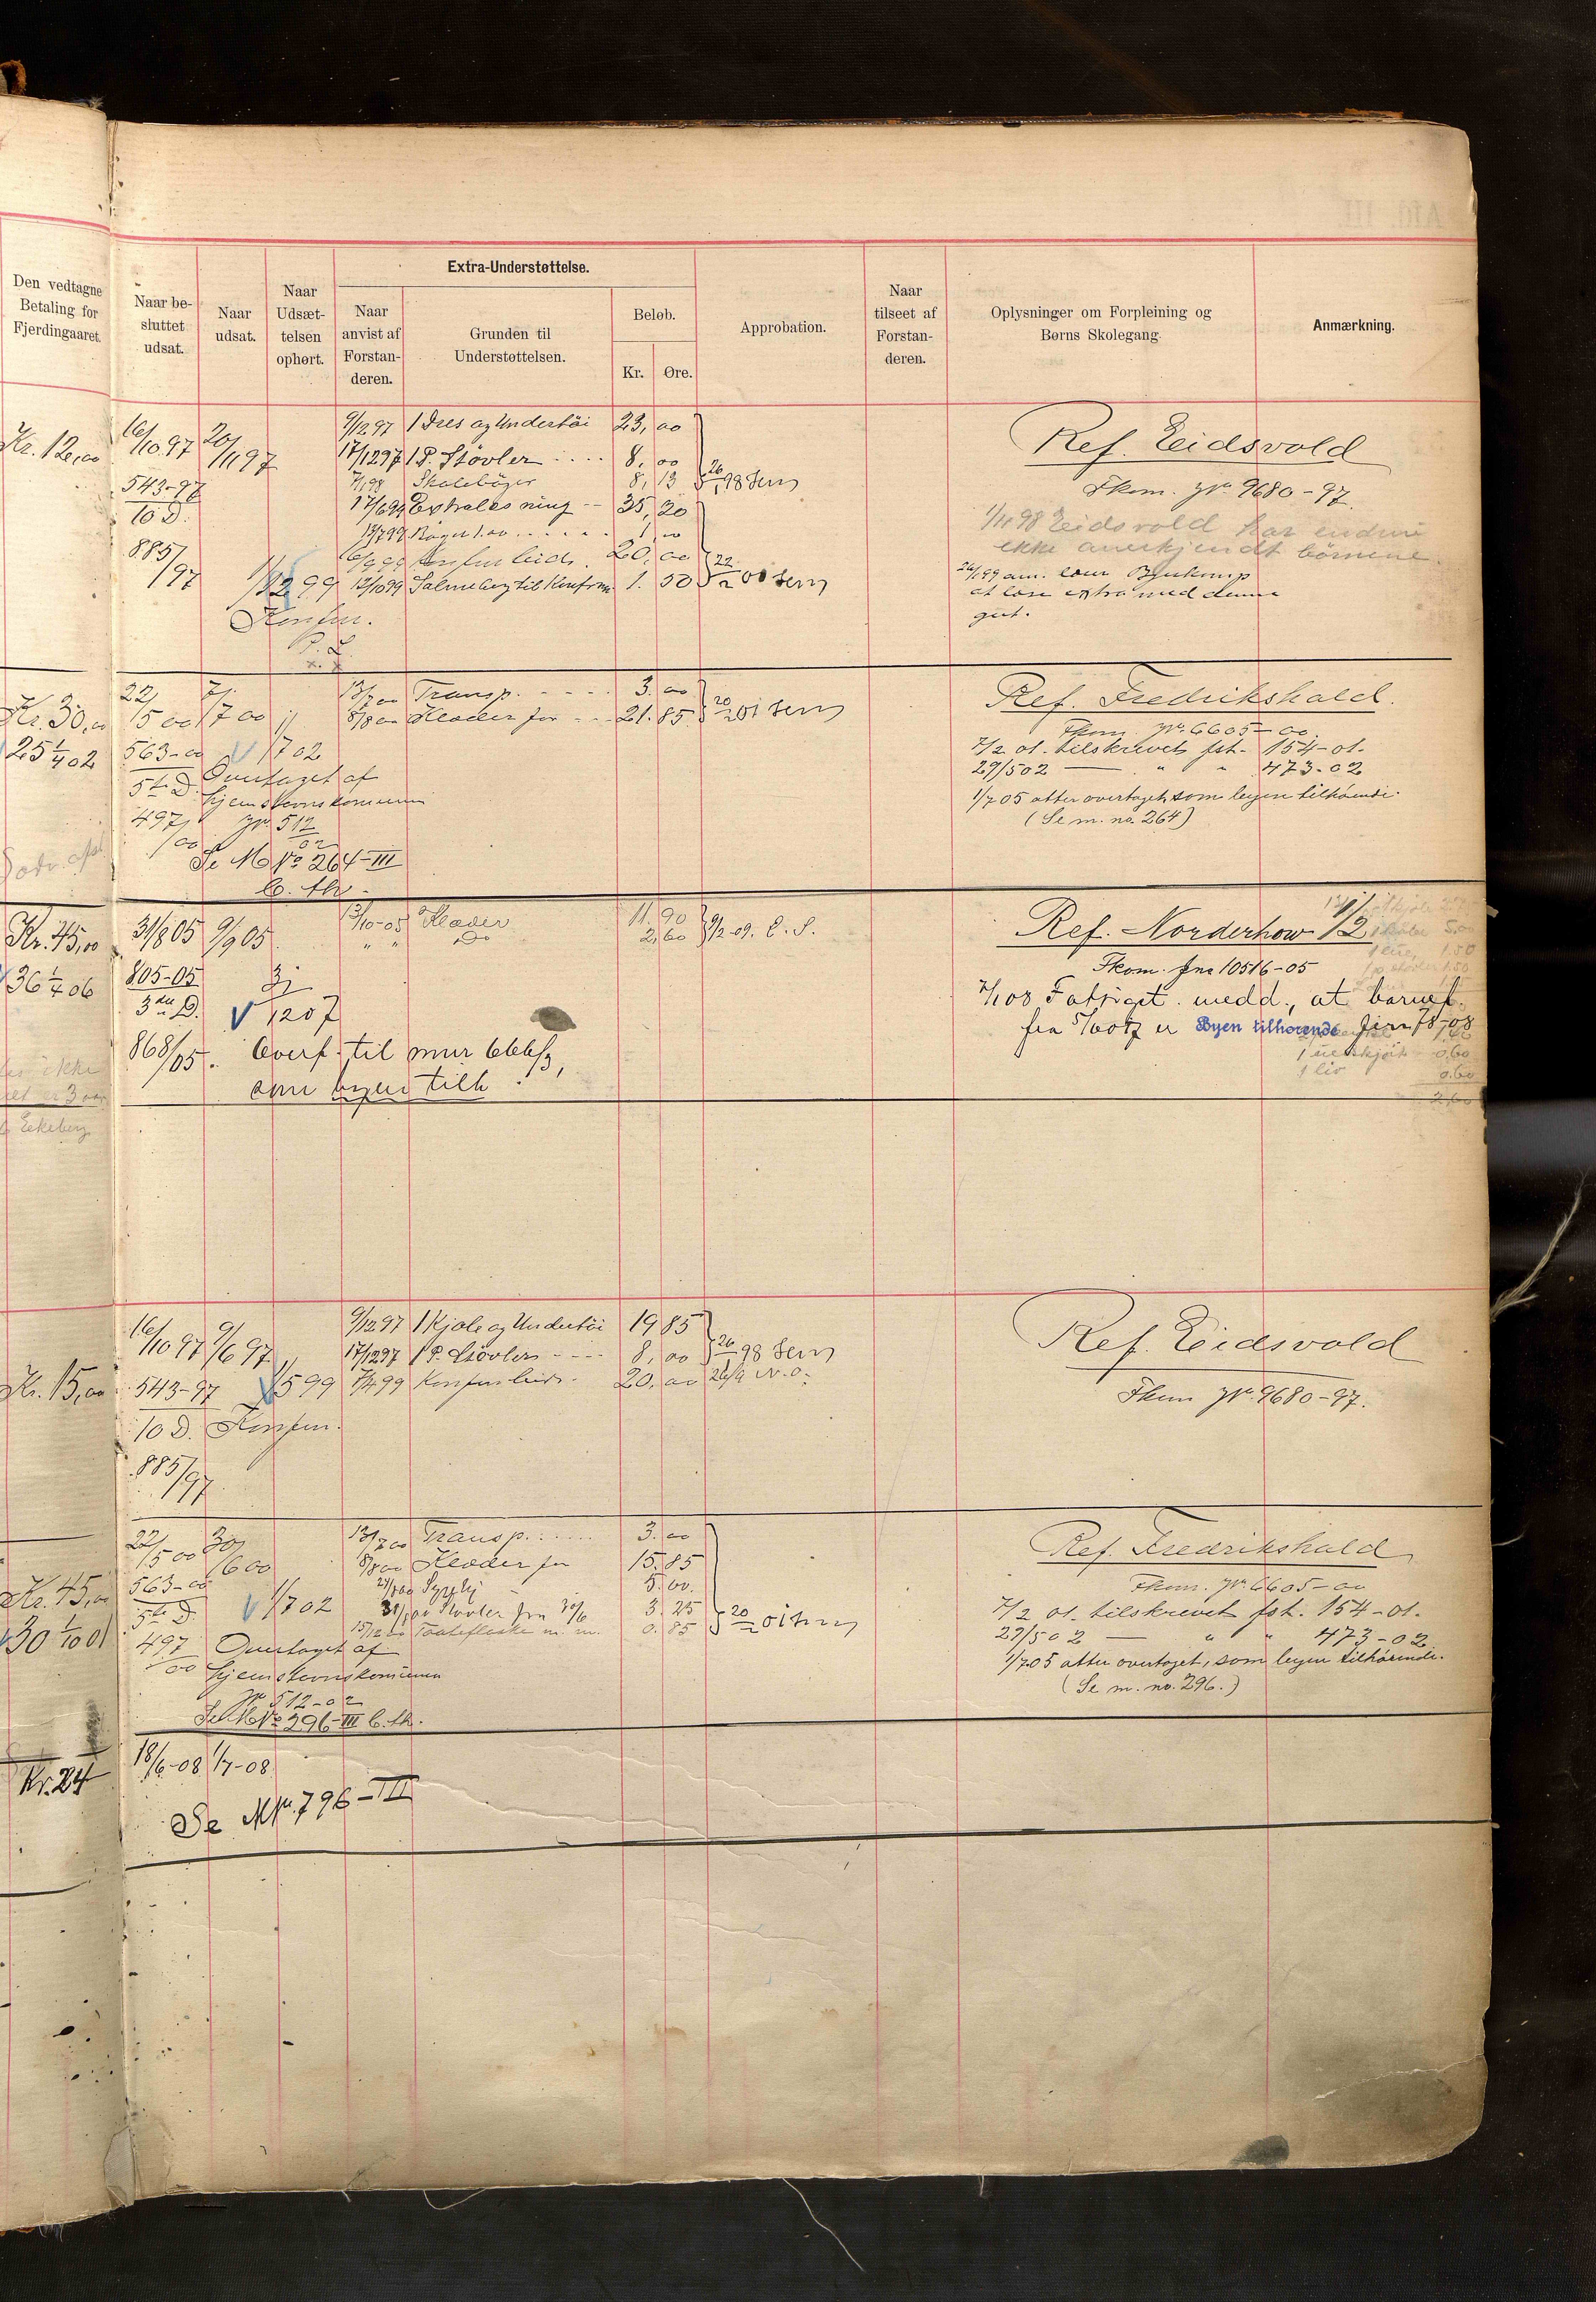 Den vedtagne
Betaling for
Fjerdingaaret.
Naar be-
sluttet
udsat.
Naar
udsat.
Naar
Udsæt-
telsen
ophørt.
Extra-Understøttelse.
Naar
anvist af
Forstan-
deren.
Grunden til
Understøttelsen.
Beløb.
Kr.
Øre.
Approbation.
Naar
tilseet af
Forstan-
deren.
Oplysninger om Forpleining og
Børns Skolegang.
Anmærkning.
Kr. 12,00
16/10 97 20/11 97
543-97
10 D.
885/97
1/12 99
Konfirm.
9/12 97 1 Dres og Undertöi 23,00
17/12 97 1 P. Stövler 8,00
7/1 98 Skoleböger 8,13
17/6 99 Extralæsning 35,20
1,00
20,00
12/10 99 Salmebog til Konfirm 1.50
26/1 98
22/2 00
Ref. Eidsvold
Fkom. Jr. 9680-97
1/11 98 Eidsvold har endnu
ikke anerkjendt börnene.
at læse extra med denne
gut.
Kr. 30,00
25 1/4 02
22/5 00 7/7 00
563-00
1/7 02
5te D.
497/00
Overtaget af
hjemstavnskommunen
Jr. 512/02
Se M No 264-III
13/7 00 Transp. 3.00
8/8 00 Klæder for 21.85
20/2 01
Ref. Fredrikshald.
Fkom. Jr. 6605-00.
7/2 01. tilskrevet fst. 154-01.
29/5 02 — " " 473-02
1/7 05 atter overtaget som byen tilhörende.
(Se m. no. 264)
Kr. 45,00
36 1/4 06
31/8 05 9/9 05
805-05
3die D.
868/05.
1 2 07
Overf. til mnr 666/3,
som byen tilh.
13/10-05 Klæder 11.90
" " Do 2,60
9/2-09. C. S.
Ref. Norderhow 1/2
Fkom. Jno 10516-05
7/1 08 Fatsiget. medd., at barnet
fra er Byen tilhørende Jnr. 78-08
5.00
1.50
1.50
0.60
1 liv 0.60
2,60
Ekeberg
Kr. 15,00
16/10 97 9/6 97
543-97
1/5 99
10 D. Konfirm.
885/97
9/12 97 1 Kjole og Undertöi 19 85
17/12 97 1 P. Stövler 8,00
7/4 99 20,00
26/1 98
Ref. Eidsvold
Fkom Jr. 9680-97.
Kr. 45,00
30 1/10 01
22/5 00 30/6 00
563-00
5te D. 1/7 02
497/00 Overtaget af
hjemstavnskommunen
Jr 512-02
Se M No 296-III
13/7 00 Transp. 3.00
8/8 00 Klæder for 15.85
5.00.
Stövler fra 30/6 3.25
Taateflaske m. m. 0.85
20/2 01
Ref. Fredrikshald
Fkom. Jr. 6605-00
7/2 01. tilskrevet fst. 154-01.
29/5 02 — " " 473-02.
1/7 05 atter overtaget, som byen tilhörende.
(Se m. no. 296.)
Kr. 24
18/6-08 1/7-08
Se M Nr. 796-III